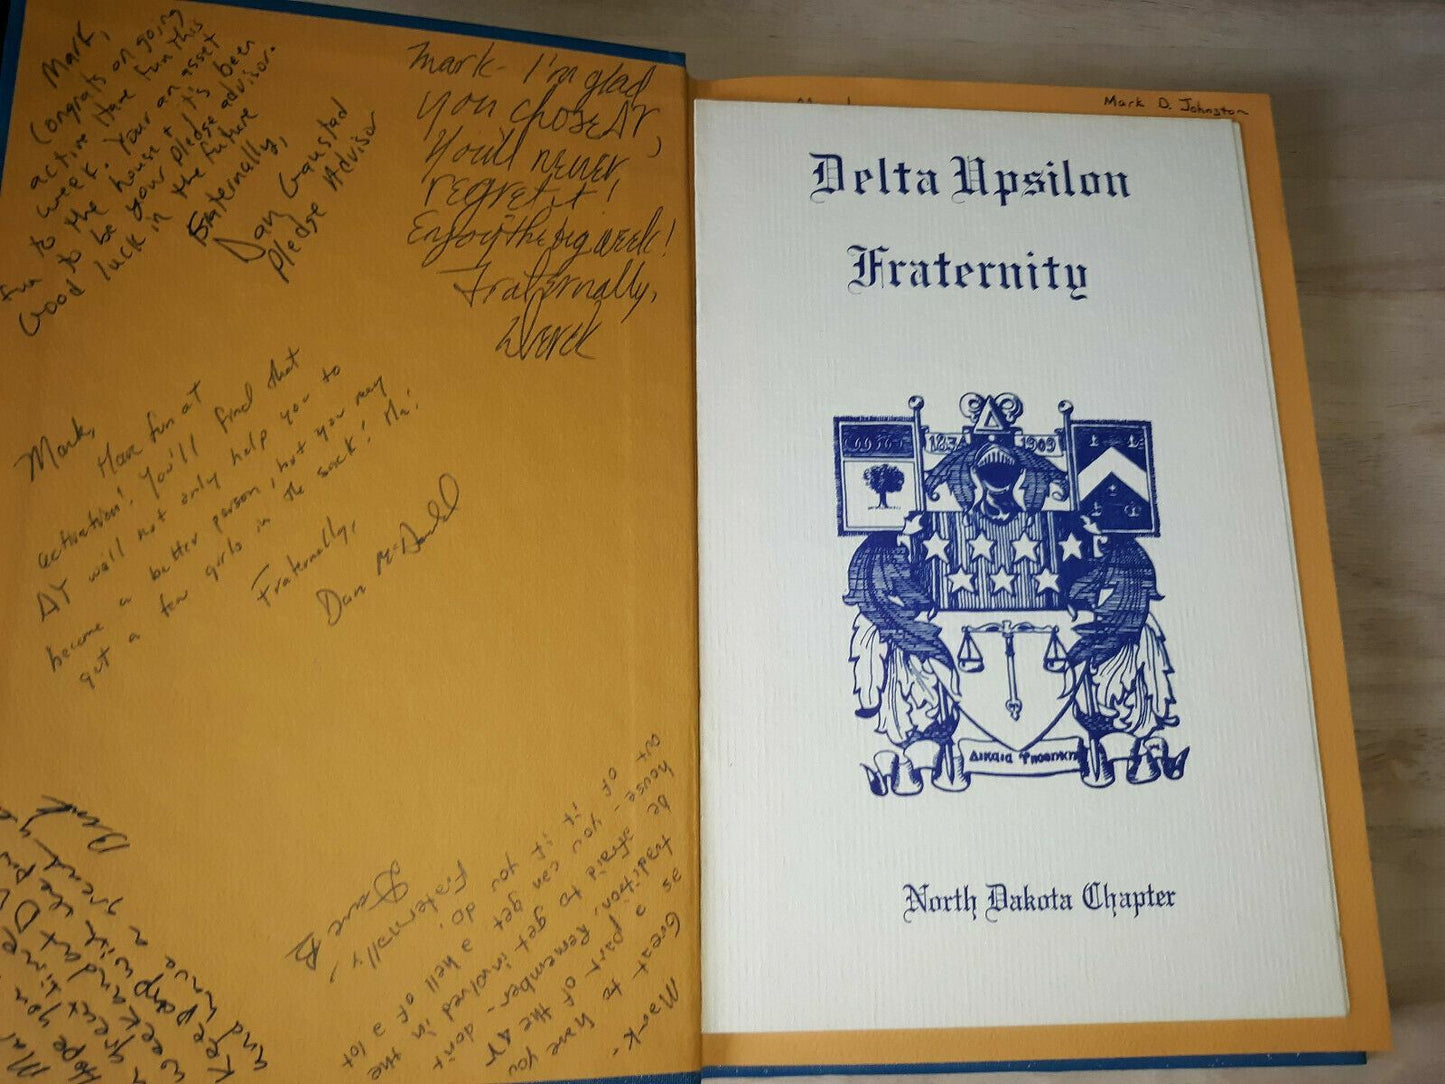 Mark,
Congrats on going
active. Have fun this
week. Your an asset
to the house & it's been
fun to be your pledge advisor.
Good luck in the future
Fraternally,
Dan Gaustad
Pledge Advisor
Mark- I'm glad
you chose ΔΥ,
You'll never
regret it!
Enjoy the big week!
Fraternally,
Derek
Mark,
Have fun at
activation! You'll find that
ΔΥ will not only help you to
become a better person, but you may
get a few girls in the sack! Ha!
Fraternally,
Dan McDonald
Mark-
Great to have you
as a part of the ΔΥ
tradition. Remember- don't
be afraid to get involved in the
house- you can get a hell of a lot
out of it if you do!
Fraternally,
Dave B
Hope you
great time
week and at D.U.
Keep up with
and have a great
Mark D. Johnston
Delta Upsilon
Fraternity
1834 1909
Δικαια Υποθηκη
North Dakota Chapter